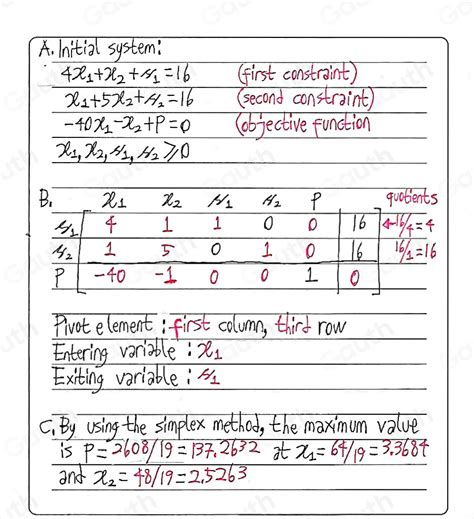 A. Initial system:
4x₁+x₂+s₁=16 (first constraint)
x₁+5x₂+s₂=16 (second constraint)
-40x₁-x₂+P=0 (objective function
x₁, x₂, s₁, s₂ ≥ 0
B. x₁ x₂ s₁ s₂ P quotients
s₁ 4 1 1 0 0 16 ←16/4=4
s₂ 1 5 0 1 0 16 16/1=16
P -40 -1 0 0 1 0
Pivot element : first column, third row
Entering variable : x₁
Exiting variable : s₁
C. By using the simplex method, the maximum value
is P = 2608/19 = 137.2632 at x₁ = 64/19 = 3.3684
and x₂ = 48/19 = 2.5263